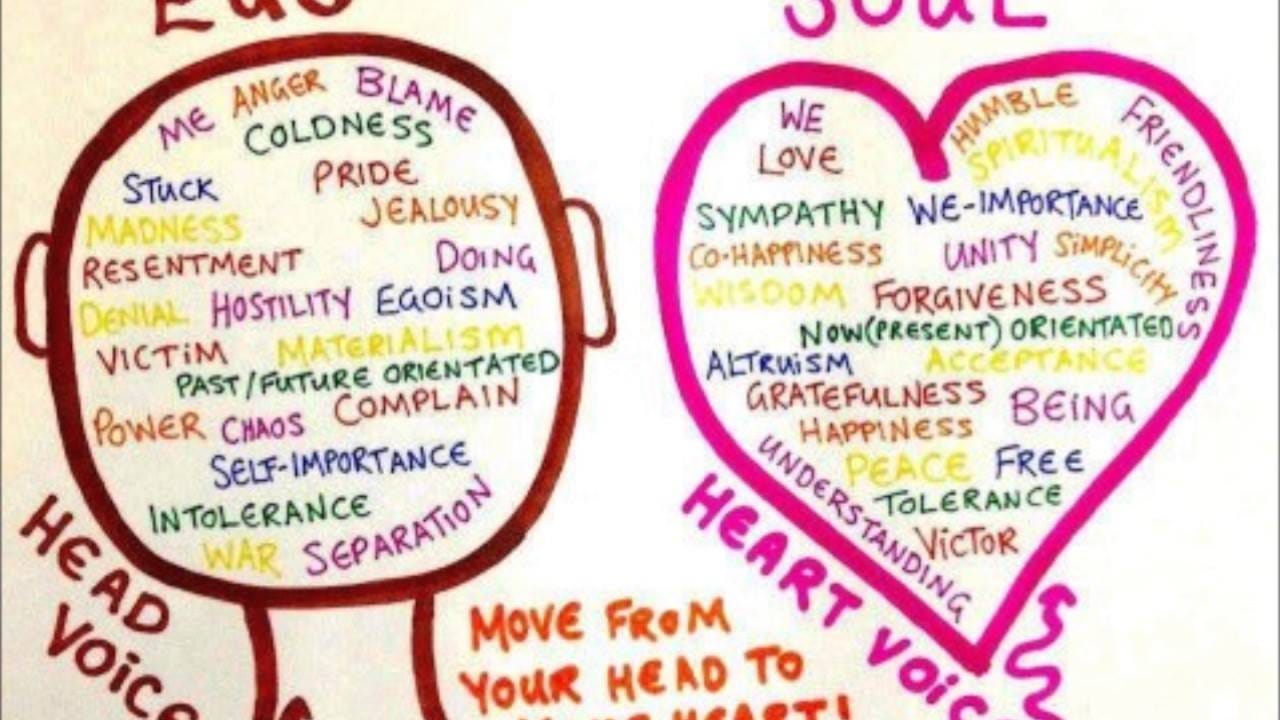 EGO
ME ANGER BLAME
COLDNESS
STUCK PRIDE
MADNESS JEALOUSY
RESENTMENT DOING
DENIAL HOSTILITY EGOiSM
VICTiM MATERIALISM
PAST/FUTURE ORIENTATED
POWER CHAOS COMPLAIN
SELF-IMPORTANCE
INTOLERANCE
WAR SEPARATION
HEAD
VOiCE
SOUL
WE HUMBLE FRIENDLINESS
LOVE SPIRITUALISM
SYMPATHY WE-IMPORTANCE
CO-HAPPINESS UNITY SiMPLiCiTY
WISDOM FORGIVENESS
NOW(PRESENT) ORIENTATED
ALTRUiSM ACCEPTANCE
GRATEFULNESS BEiNG
HAPPINESS
UNDERSTANDING PEACE FREE
TOLERANCE
ViCTOR
HEART VOiCE
MOVE FROM
YOUR HEAD TO
YOUR HEART!